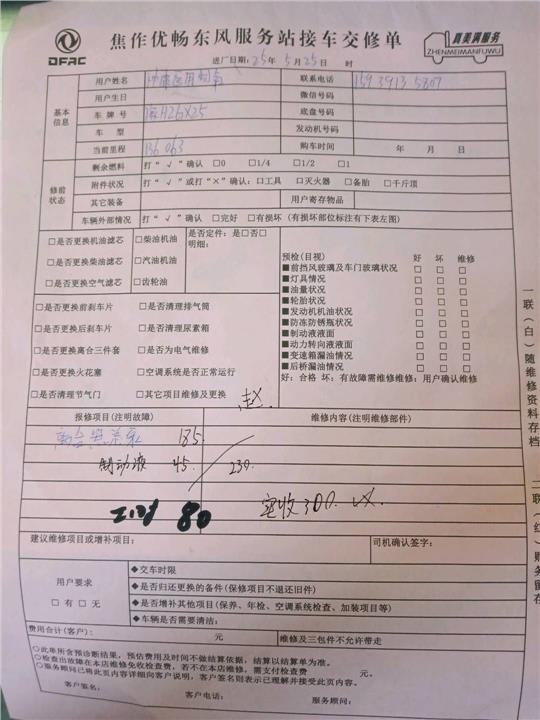 DFAC
焦作优畅东风服务站接车交修单
真美满服务
ZHENMEIMANFUWU
进厂日期：25年5月25日 时
基本信息
用户姓名 联系电话 159 3913 5807
用户生日 微信号码
车牌号 H26X25 底盘号码
车型 发动机号码
当前里程 136063 购车时间 年 月 日
修前状态
剩余燃料 打“√”确认 □0 □1/4 □1/2 □1
附件状况 打“√”或打“×”确认：□工具 □灭火器 □备胎 □千斤顶
其它装备 用户寄存物品
车辆外部情况 打“√”确认 □完好 □有损坏（有损坏部位标注有下表左图）
□是否更换机油滤芯 □柴油机油 是否定件：是□否□
□是否更换柴油滤芯 □汽油机油 明细：
□是否更换空气滤芯 □齿轮油
预检（目视） 好 坏 维修
■前挡风玻璃及车门玻璃状况 □ □ □
■灯具情况 □ □ □
■油量状况 □ □ □
■轮胎状况 □ □ □
■发动机机油状况 □ □ □
■防冻防锈瓶状况 □ □ □
■制动液液面 □ □ □
■动力转向液液面 □ □ □
■变速箱漏油情况 □ □ □
■后桥漏油情况 □ □ □
好：合格 坏：有故障需维修维修：用户确认维修
□是否更换前刹车片 □是否清理排气筒
□是否更换后刹车片 □是否清理尿素箱
□是否更换离合三件套 □是否为电气维修
□是否更换火花塞 □空调系统是否正常运行
□是否清理节气门 □其它项目维修及更换
赵
报修项目（注明故障） 维修内容（注明维修部件）
离合器总泵 185
制动液 45 230
工时 80 实收300
建议维修项目或增补项目： 司机确认签字：
用户要求
□有□无
◆交车时限
◆是否归还更换的备件（保修项目不退还旧件）
◆是否增补其他项目（保养、年检、空调系统检查、加装项目等）
◆车辆是否需要清洁：
费用合计（客户）： 元 维修及三包件不允许带走
○此单所含预诊断结果，预估费用及时间不做结算依据，结算以结算单为准。
○检查出故障在本店维修免收检查费，若不在本店维修，需支付检查费 元。
○服务顾问已将此页内容详细向客户说明，客户签名则表示已理解并接受此页内容。
客户签名： 客户电话： 服务顾问：
一联（白）随维修资料存档
二联（红）财务留存